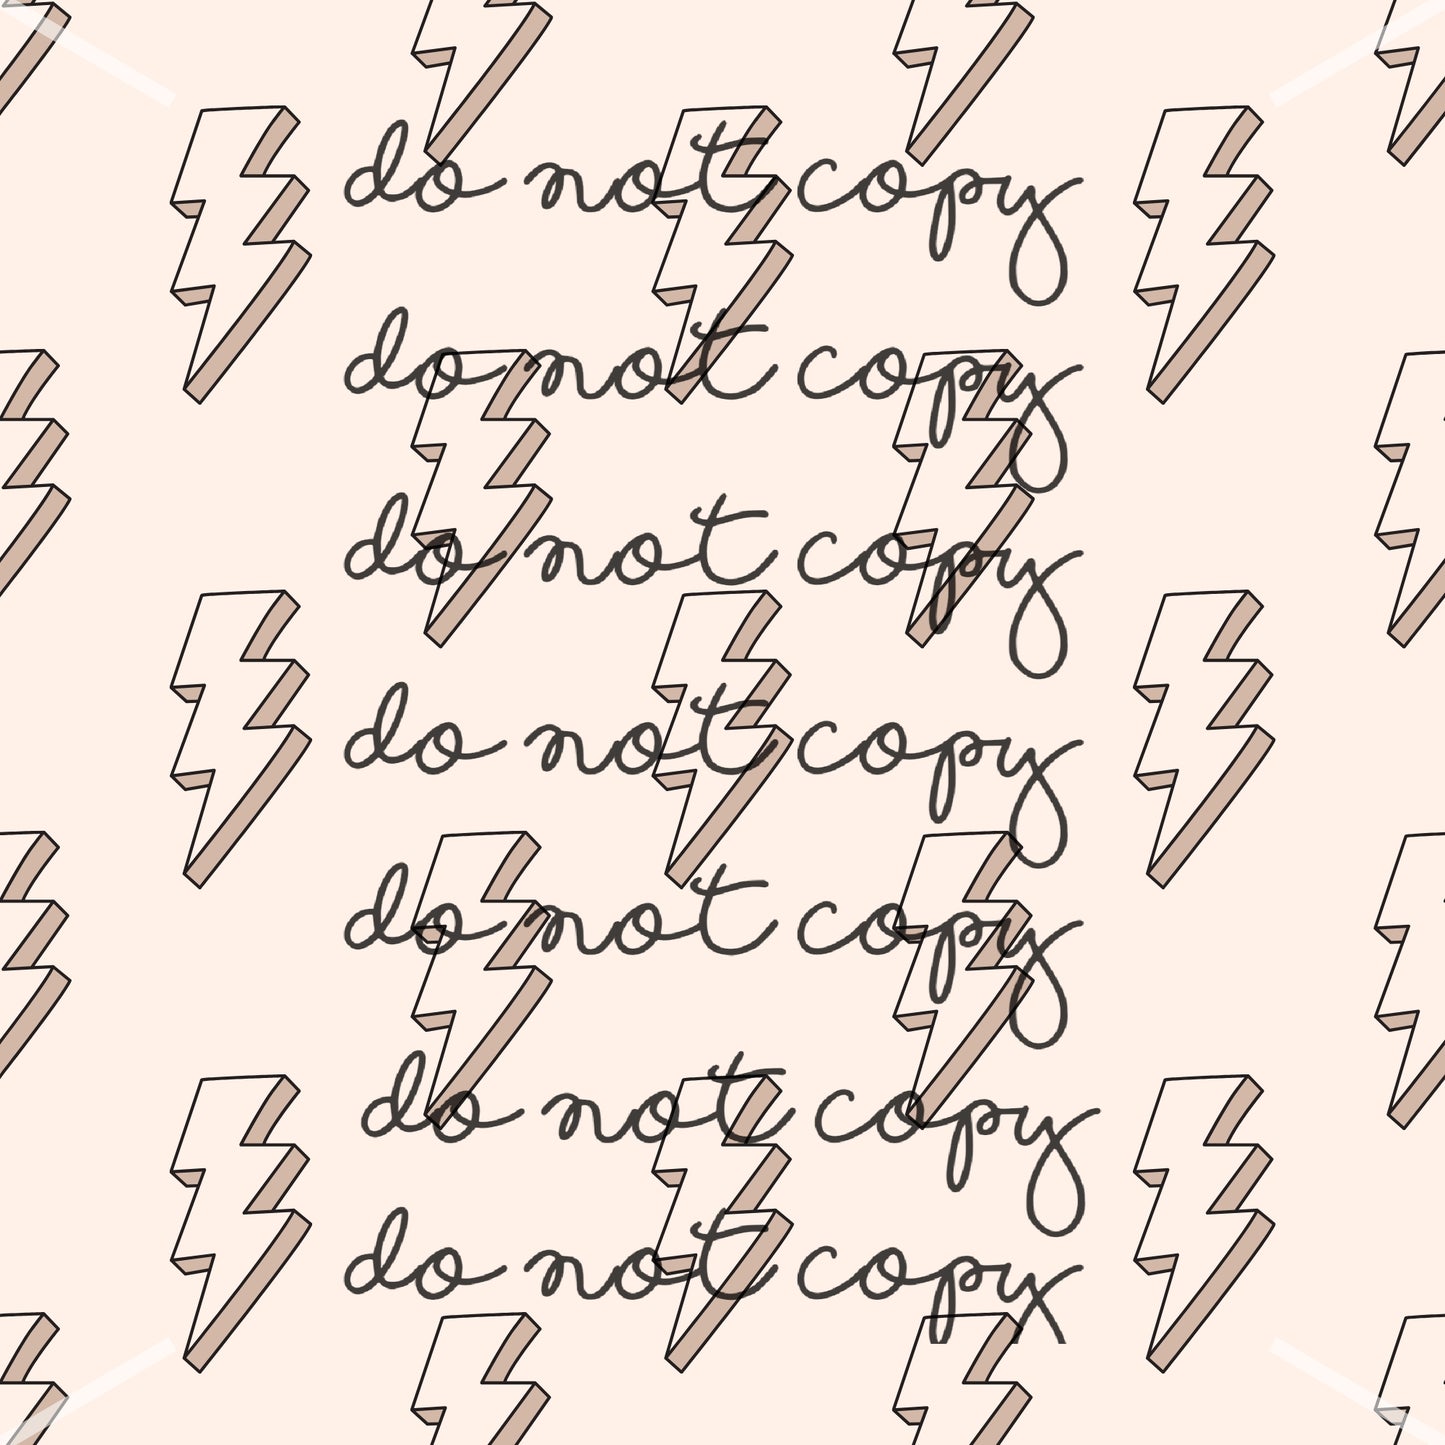 do not copy
do not copy
do not copy
do not copy
do not copy
do not copy
do not copy